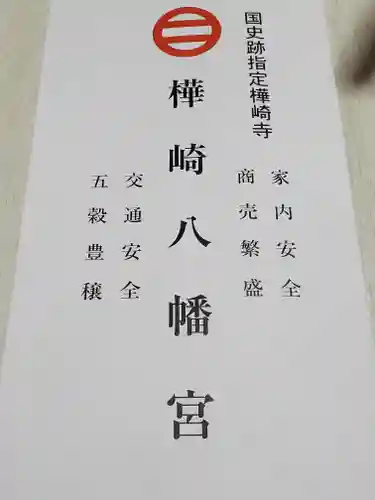 国史跡指定樺崎寺
家内安全
商売繁盛
樺崎八幡宮
交通安全
五穀豊穣